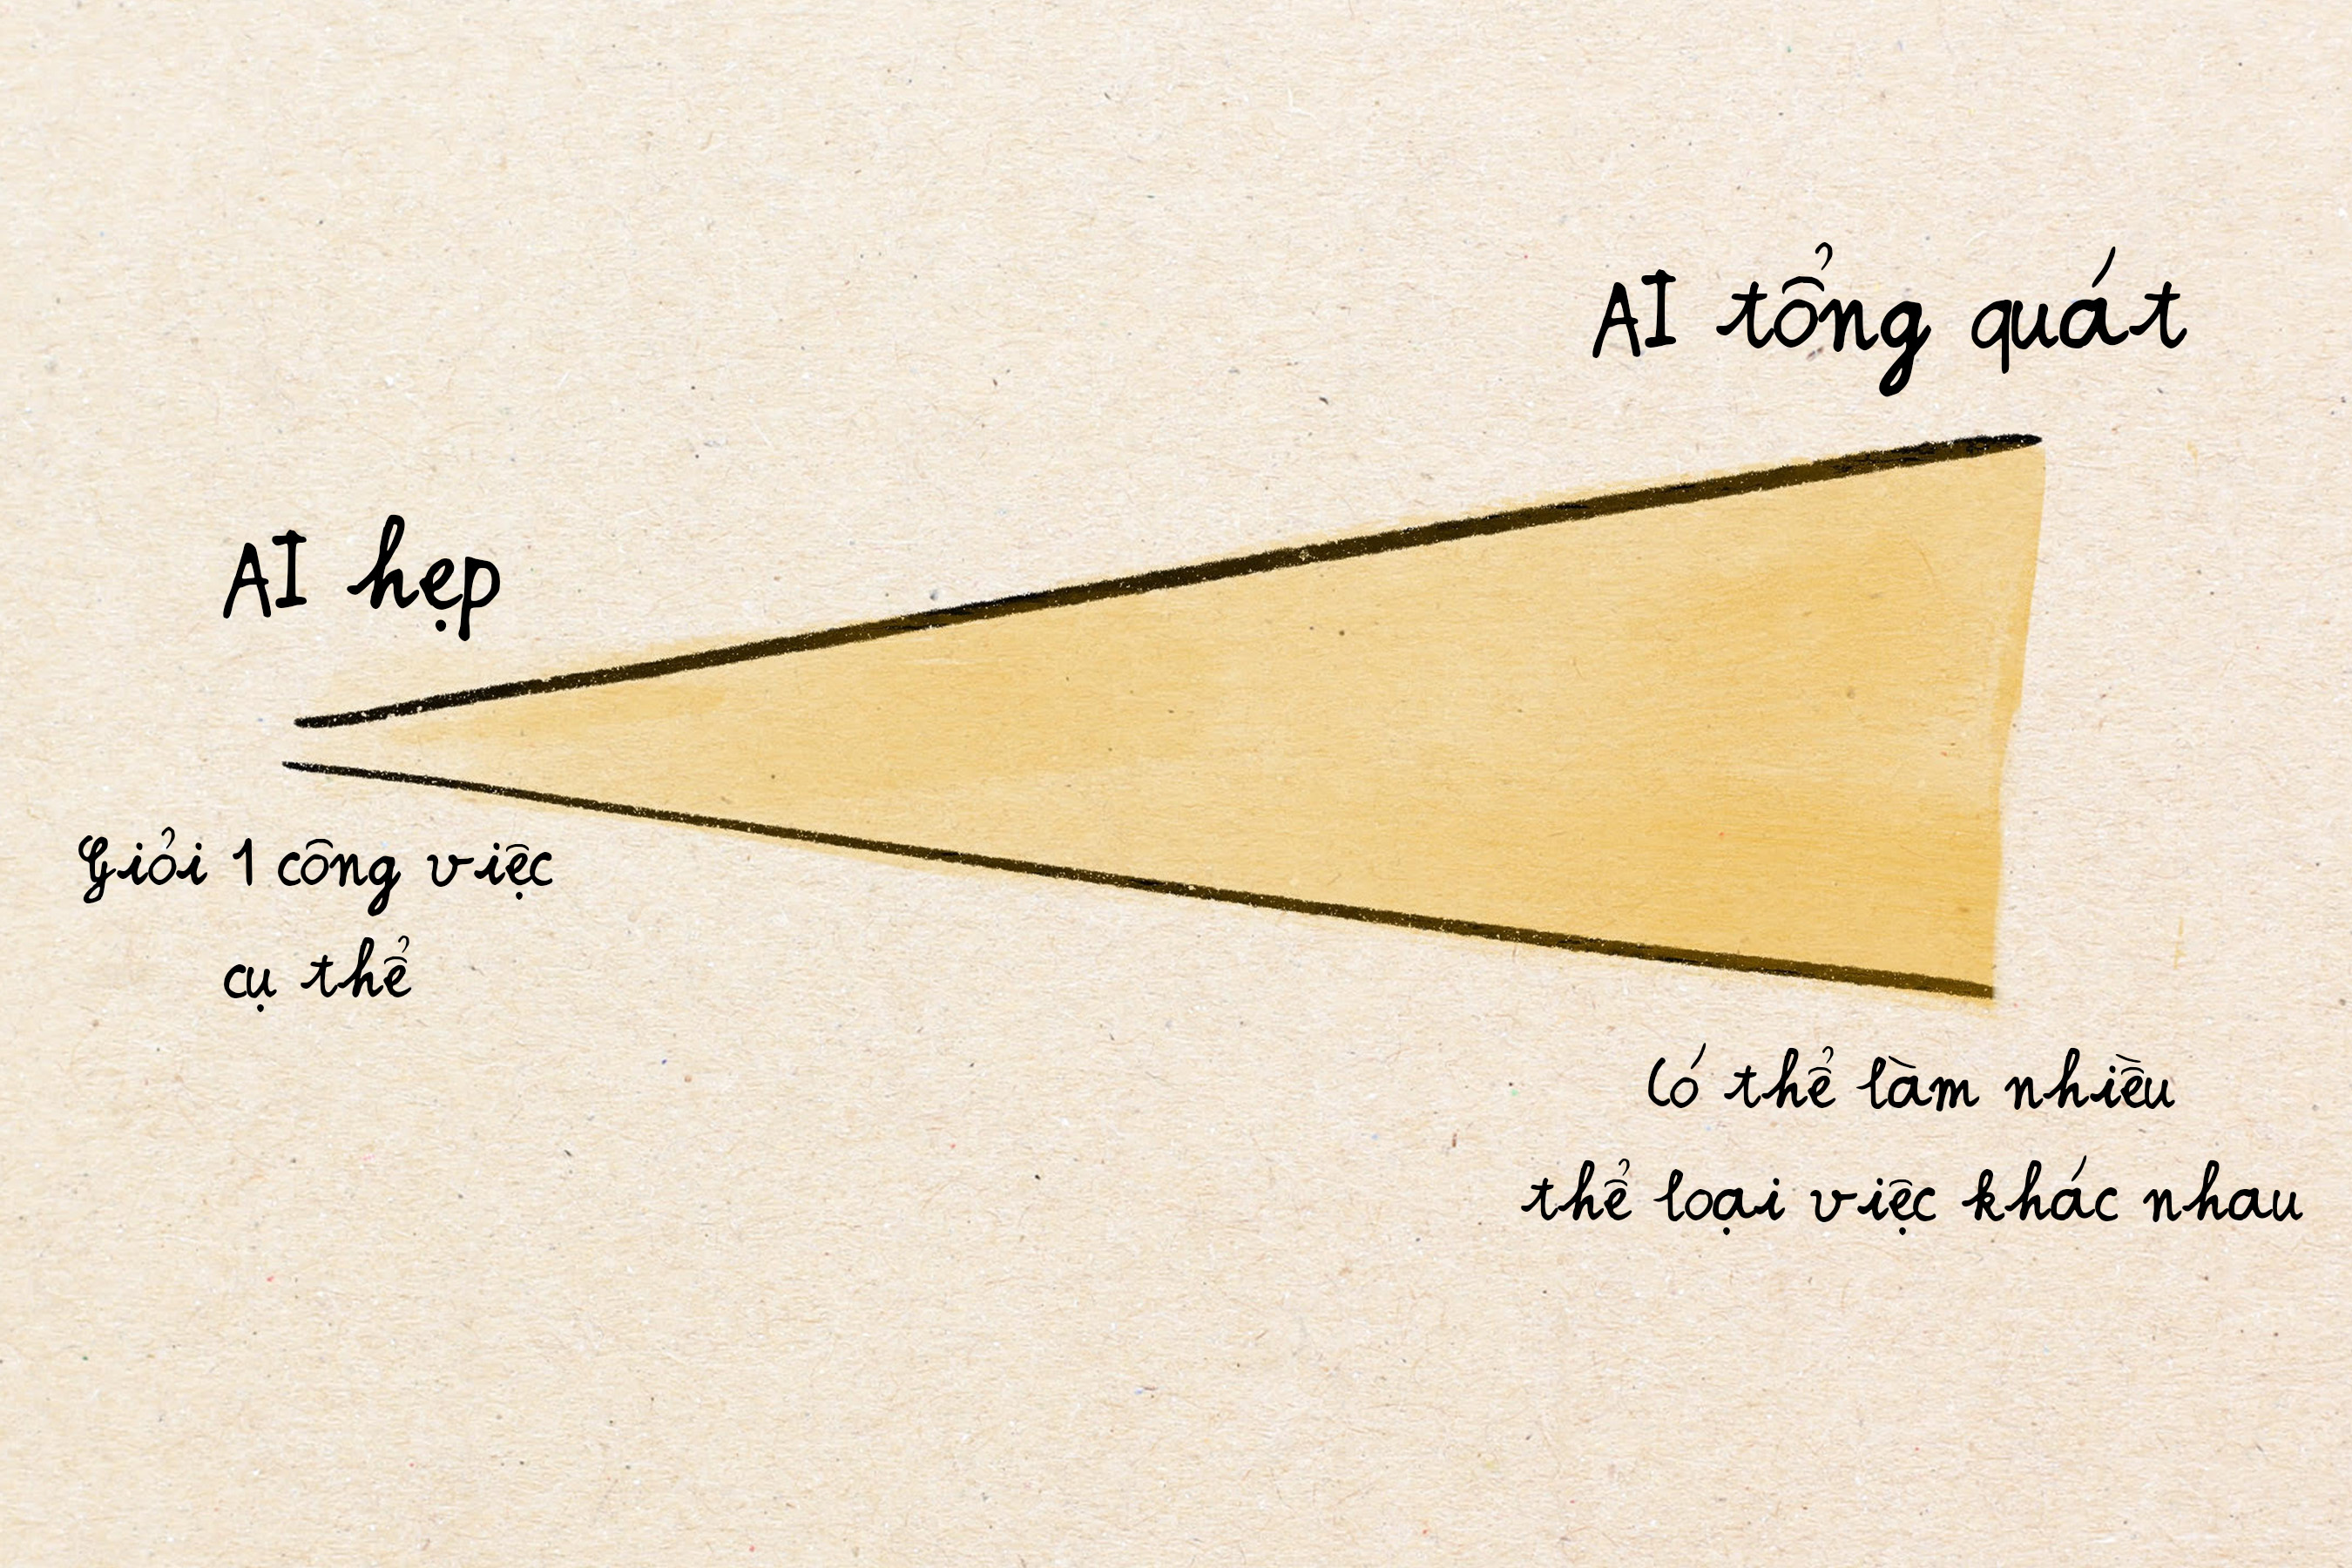 AI tổng quát
AI hẹp
Giỏi 1 công việc
cụ thể
Có thể làm nhiều
thể loại việc khác nhau